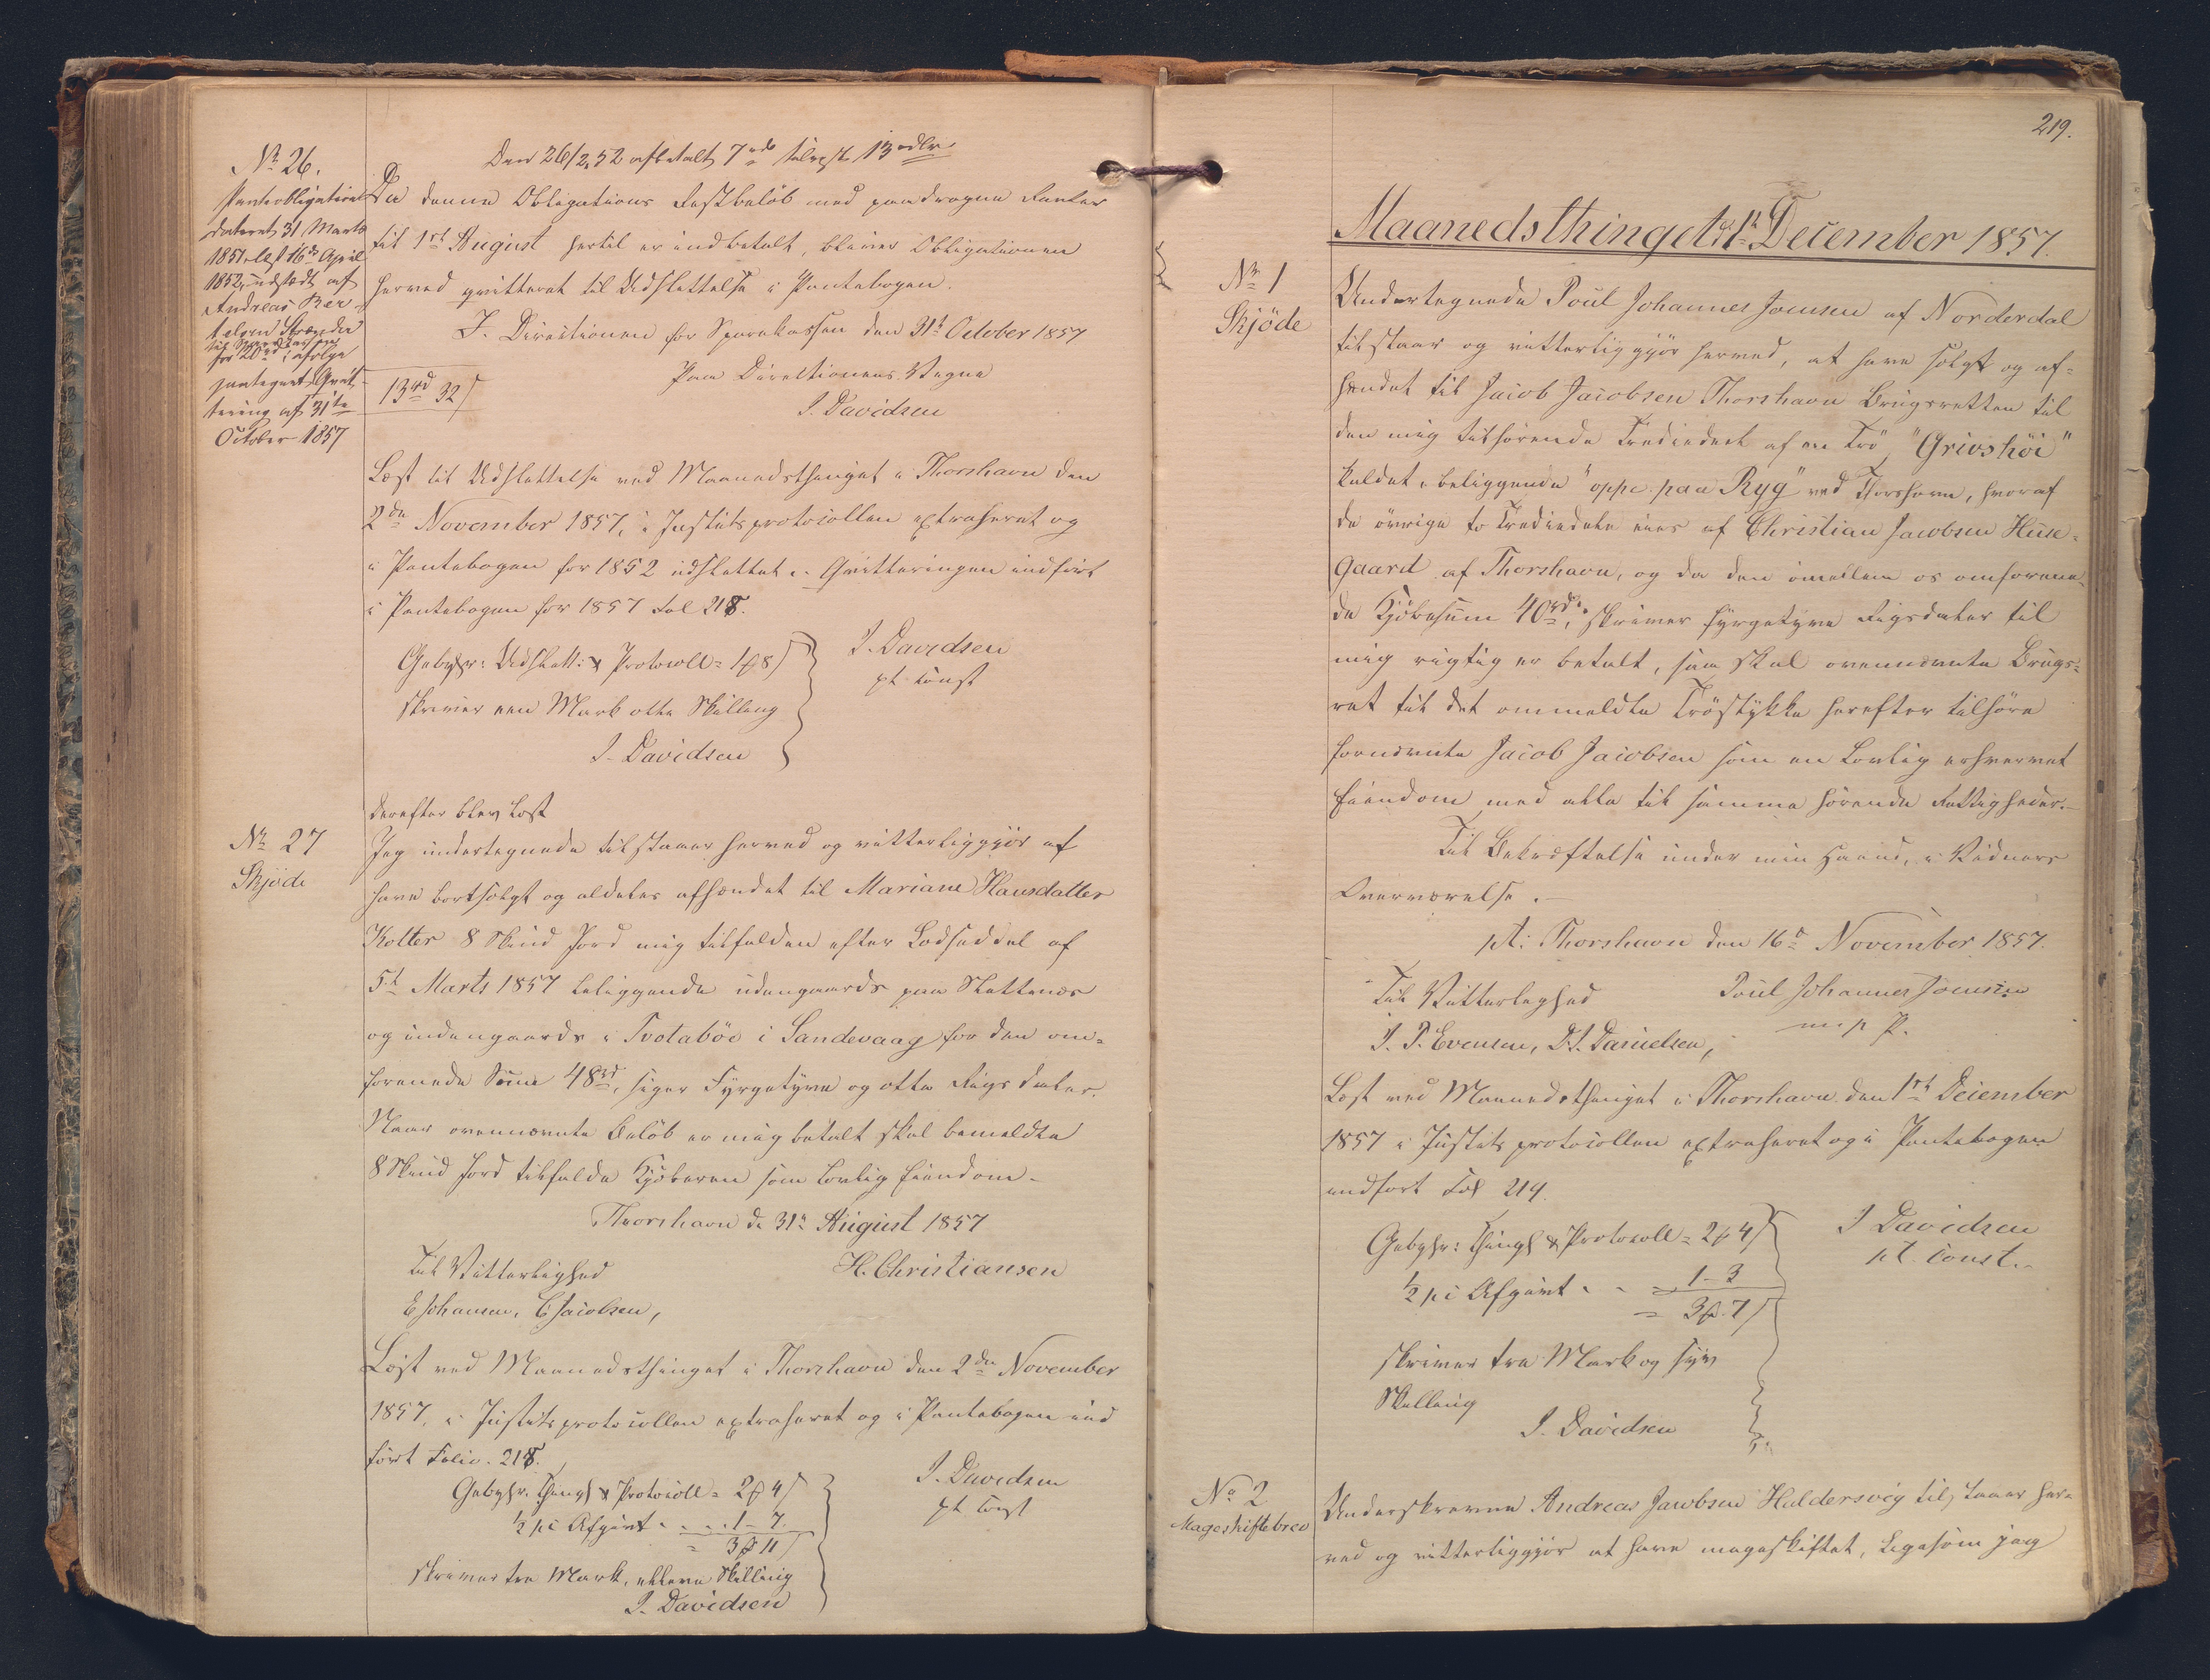 No 26.
Panteobligation
dateret 31 Marts
1851, læst 16de April
1852, udstædt af
Andreas Ber
telsen Strænder
til Sparekassen
for 20rd i følge
paategnet Qvit-
tering af 31te
October 1857
Den 26/2 52 afbetalt 7rd tilrest 13rdlr
Da denne Obligations Restbeløb med paadragne Renter
til 1ste August hertil er indbetalt, bliver Obligationen
herved qvitteret til Udslettelse i Pantebogen.
I Directionen for Sparekassen den 31t October 1857
Paa Direktionens Vegne
J. Davidsen
13rd 32ß
Læst til Udslettelse ved Maanedsthinget i Thorshavn den
2den November 1857, i Justitsprotocollen extraheret og
i Pantebogen for 1852 udslettet. Qvitteringen indført
i Pantebogen for 1857 Fol 218.
Gebyhr: Udslett: & Protocoll = 1 8ß
skriver een Mark otte Skilling
J. Davidsen
J. Davidsen
pt const
Derefter blev Læst
No 27
Skjøde
Jeg undertegnede tilstaaer herved og vitterliggjør at
have bortsolgt og aldeles afhændet til Mariane Hansdatter
Kolter 8 Skind Jord mig tilfalden efter Lodseddel af
5t Marts 1857 beliggende udengaards paa Slettenes
og indengaards i Tvotabøe i Sandevaag for den om-
forenede Sum 48rd, siger Fyrgetyve og otte Rigsdaler.
Naar ovennævnte Beløb er mig betalt skal bemeldte
8 Skind Jord tilfalde Kjøberen som Lovlig Eiendom.
Thorshavn d. 31t August 1857
Til Vitterlighed
H. Christiansen
E Johansen, C Jacobsen,
Læst ved Maanedsthinget i Thorshavn den 2den November
1857, i Justitsprotocollen extraheret og i Pantebogen ind
ført Folio 218.
Gebyhr. Thingl & Protocoll = 2 4ß
1/2 pc Afgivt - - . . 1 - 7.
= 3 11ß
skriver tre Mark, elleve Skilling
J. Davidsen
J. Davidsen
pt const
219.
Maanedsthinget d. 1t December 1857.
No 1
Skjöde
Undertegnede Poul Johannes Joensen af Norderdal
tilstaar og vitterliggjör herved, at have solgt og af-
hændet til Jacob Jacobsen Thorshavn Brugsretten til
den mig tilhørende Trediedeel af en Trö, "Grivshöi"
kaldet, beliggende "oppe paa Ryg" ved Thorshavn, hvoraf
de övrige to Trediedele eies af Christian Jacobsen Huse-
gaard af Thorshavn, og da den imellem os omforene-
de Kjöbesum 40rd, skriver fyrgetyve Rigsdaler til
mig rigtig er betalt, saa skal ovennævnte Brugs-
ret til det ommeldte Tröstykke herefter tilhøre
fornævnte Jacob Jacobsen som en Lovlig erhvervet
Eiendom med alle til samme hörende Rettigheder.-
Til Bekræftelse under min Haand, i Vidners
Overværelse.-
pt: Thorshavn den 16d November 1857.
Til Vitterlighed
Poul Johannes Joensen
m. p. P.
J. P. Evensen, D. J. Danielsen,
Læst ved Maanedsthinget i Thorshavn den 1ste December
1857 i Justitsprotocollen extraheret og i Pantebogen
indført Fol 219.
Gebyhr: Thingl & Protocoll = 2 4ß
1/2 pc Afgivt - - 1-3
= 3 7ß
skriver tre Mark og syv
Skilling
J. Davidsen
J Davidsen
pt. const.
No 2
Mageskiftebrev
Underskrevne Andreas Jacobsen Haldersvig tilstaaer her-
ved og vitterliggjør at have mageskiftet, Ligesom jeg